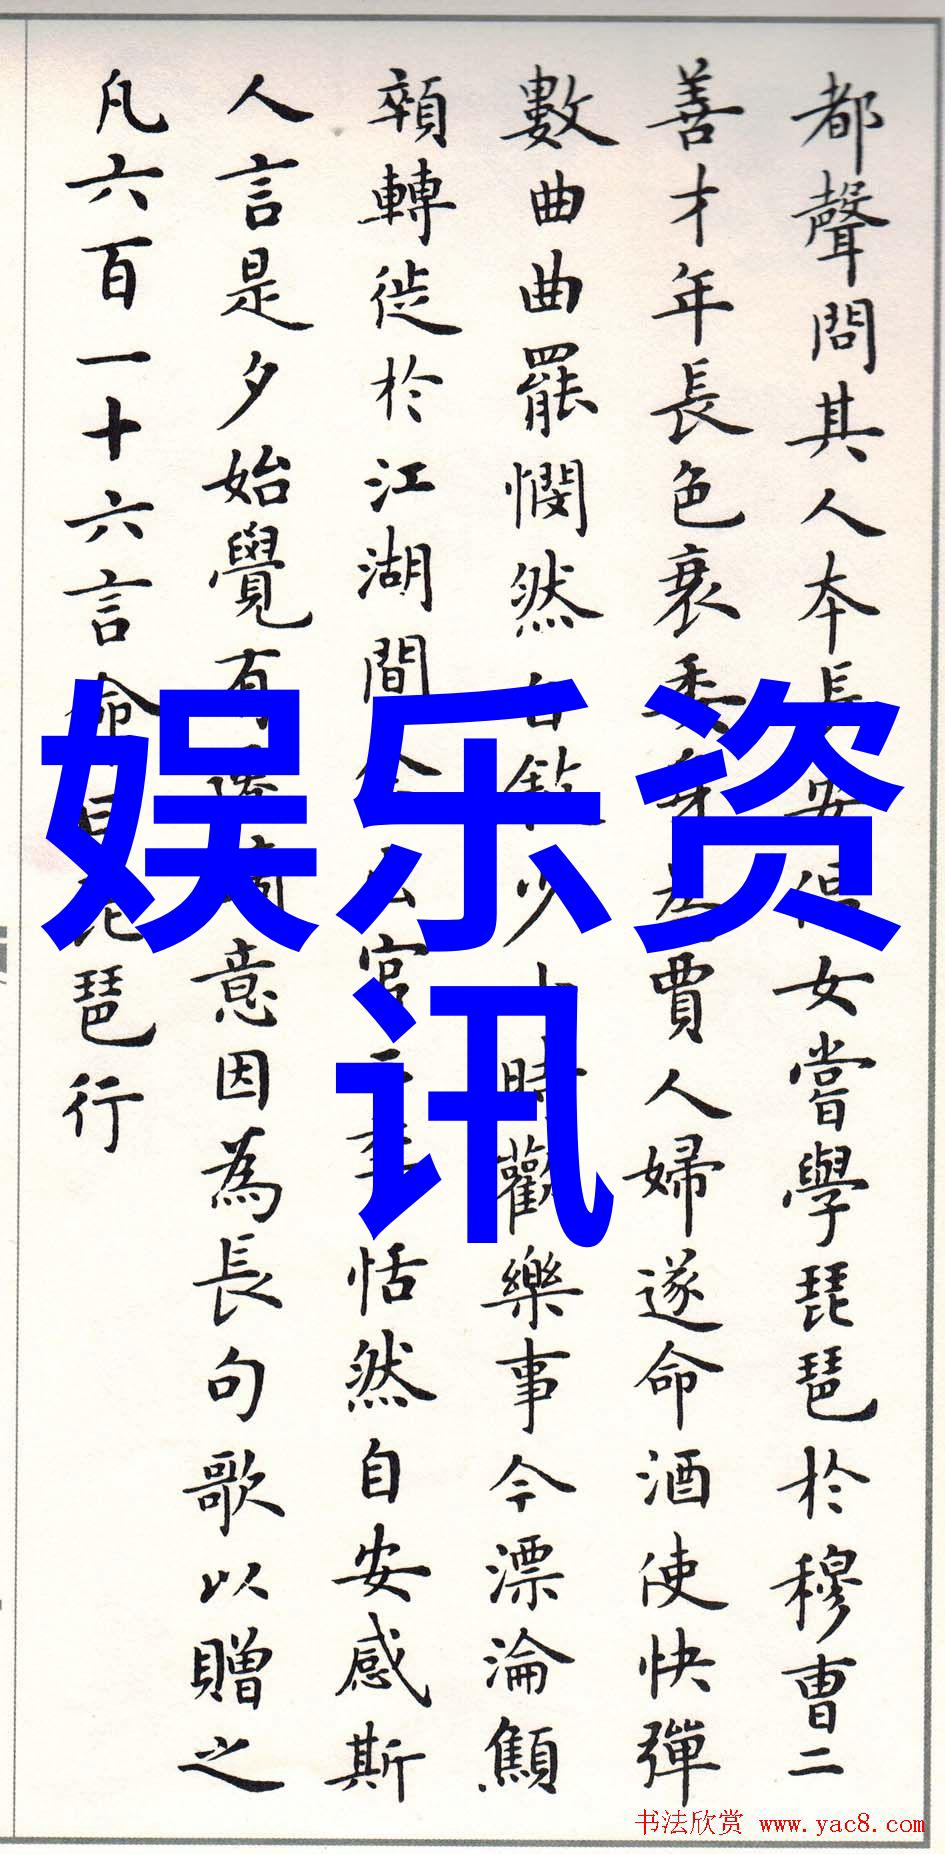 都聲問其人本長安倡女嘗學琵琶於穆曹二
善才年長色衰委身為賈人婦遂命酒使快彈
數曲曲罷憫然自敘少小時歡樂事今漂淪顦
顇轉徙於江湖間余出官二年恬然自安感斯
人言是夕始覺有遷謫意因為長句歌以贈之
凡六百一十六言命曰琵琶行
娱乐资
讯
书法欣赏 www.yac8.com